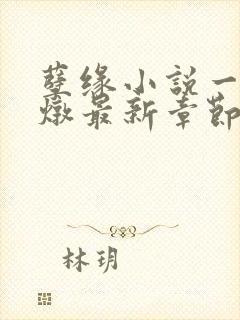 孽缘小説一
燉最新章節
林玥